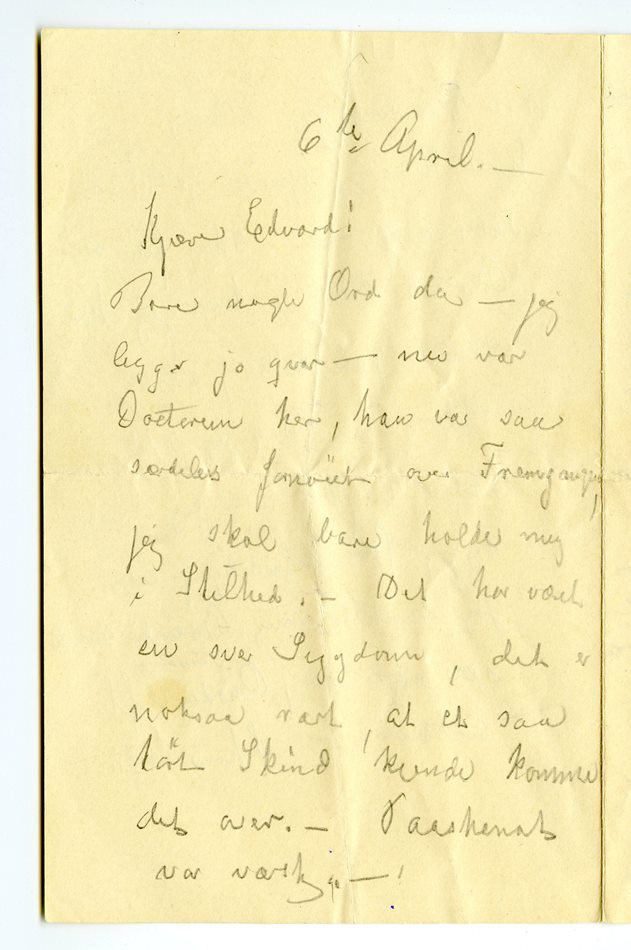 6te April. —
Kjære Edvard!
Bare nogle Ord da — jeg
ligger jo qvar — nu var
Doctoren her, han var saa
særdeles fornöiet over Fremgangen,
jeg skal bare holde mig
i Stilhed. — Det har været
en svær Sygdom, det er
noksaa rart, at et saa
tört Skind kunde komme
det over. — Paaskenat
var værst, — !